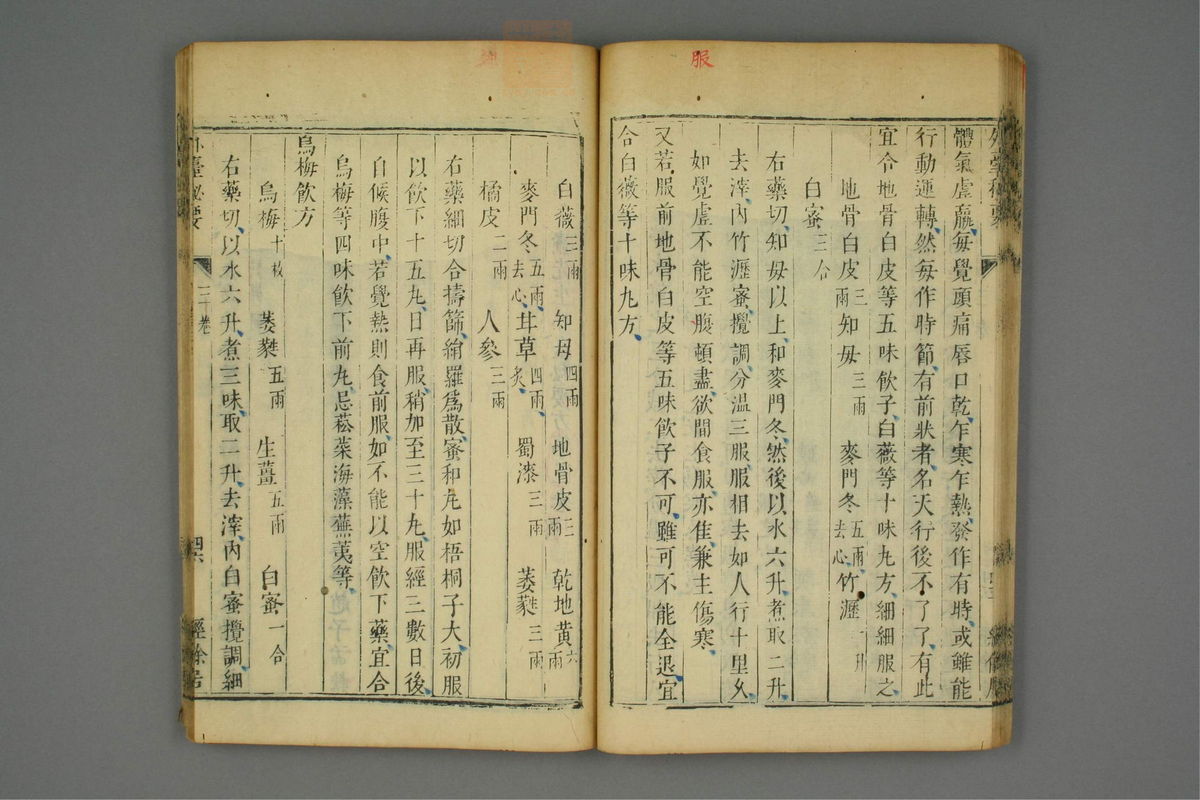 服
外臺秘要
體氣虛羸每覺頭痛唇口乾乍寒乍熱發作有時或雖能
行動運轉然每作時節有前狀者名天行後不了了有此
宜令地骨白皮等五味飲子白薇等十味丸方細細服之
地骨白皮三兩 知母三兩 麥門冬五兩去心 竹瀝一升
白蜜三合
右藥切知母以上和麥門冬然後以水六升煮取二升
去滓內竹瀝蜜攪調分溫三服服相去如人行十里久
如覺虛不能空腹頓盡欲間食服亦佳兼主傷寒
又若服前地骨白皮等五味飲子不可雖可不能全退宜
合白薇等十味丸方
白薇三兩 知母四兩 地骨皮三兩 乾地黃六兩
麥門冬五兩去心 甘草四兩炙 蜀漆三兩 萎蕤三兩
橘皮二兩 人參三兩
右藥細切合擣篩絹羅為散蜜和丸如梧桐子大初服
以飲下十五丸日再服稍加至三十丸服經三數日後
自候腹中若覺熱則食前服如不能以空飲下藥宜合
烏梅等四味飲下前丸忌菘菜海藻蕪荑等
烏梅飲方
烏梅十枚 萎蕤五兩 生薑五兩 白蜜一合
右藥切以水六升煮三味取二升去滓內白蜜攪調細
外臺秘要 三卷 四六 經餘居